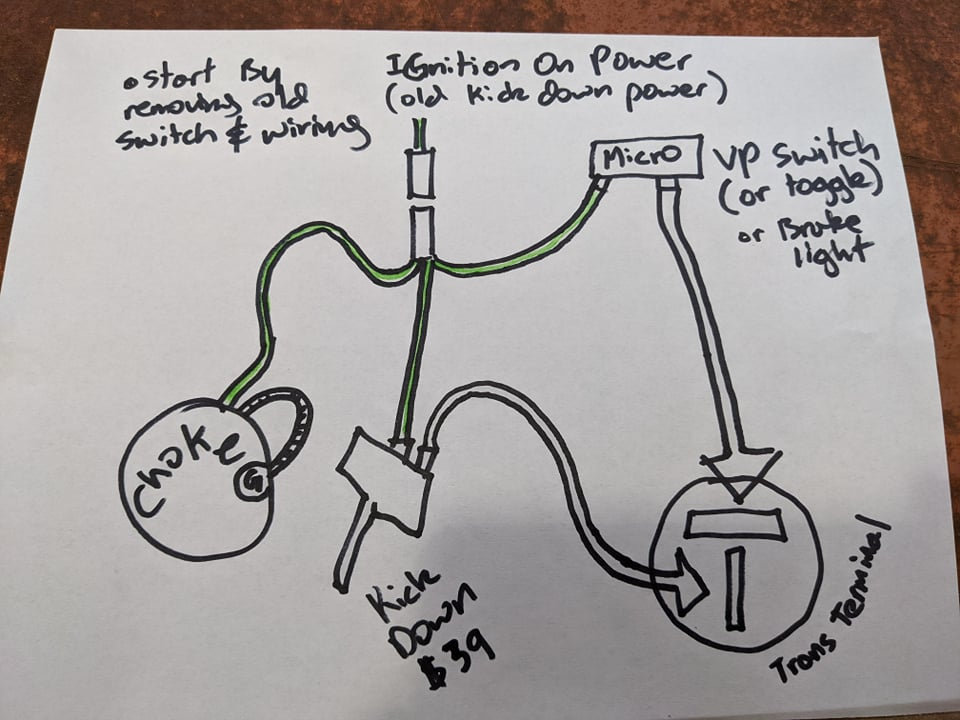 • Start By
removing old
switch & wiring
IGnition On Power
(old kick down power)
Micro
VP Switch
(or toggle)
or Brake
light
Choke
G
Kick
Down
$39
Trans Terminal